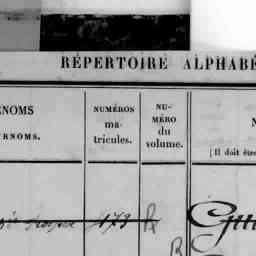 RÉPERTOIRE ALPHABÉ
NOMS
RNOMS.
NUMÉROS
ma-
tricules.
NU-
MÉRO
du
volume.
N
(Il doit être
179 R
R